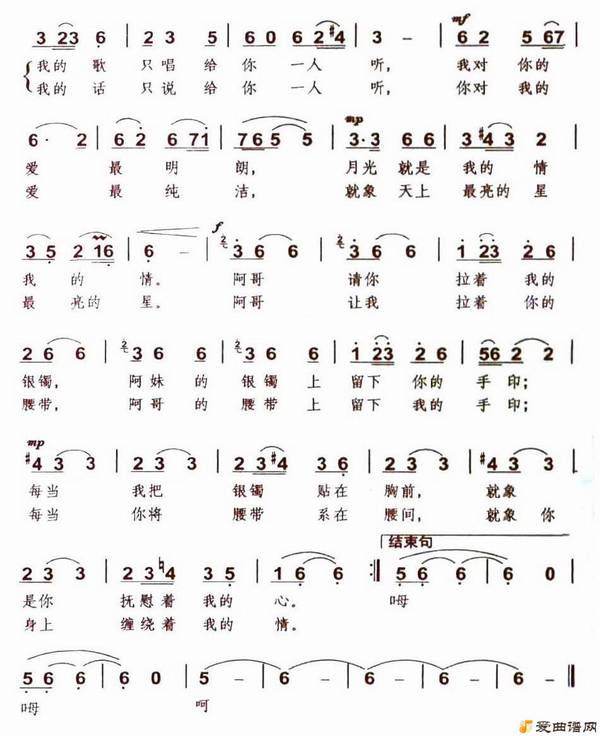 mf
3 23 6 | 2 3 5 | 6 0 6 2 #4 | 3 - | 6 2 5 67
我的歌 只唱给 你 一人 听, 我对你的
我的话 只说给 你 一人 听, 你对我的
mp
6· 2 | 6 2 6 71 | 765 5 | 3·3 6 6 | 3 #43 2
爱 最明 朗, 月光就是 我的情
爱 最纯 洁, 就象天上 最亮的星
f
3 5 2 16 | 6 - | 3 6 6 | 3 6 6 | 1 23 2 6
我 的 情。 阿哥 请你 拉着 我的
最 亮的 星。 阿哥 让我 拉着 你的
2 6 6 | 3 6 6 | 2 6 6 | 1 23 2 6 | 56 2 2
银镯, 阿妹的 银镯上 留下 你的 手印;
腰带, 阿哥的 腰带上 留下 我的 手印;
mp
#4 3 3 | 2 3 3 | 2 3 #4 3 6 | 2 3 3 | #4 3 3
每当 我把 银镯 贴在 胸前, 就象
每当 你将 腰带 系在 腰间, 就象你
结束句
2 3 3 | 2 3 ♮4 3 5 | 1 6 6 :| 5 6 6 | 6 0
是你 抚慰着 我的 心。 呣
身上 缠绕着 我的 情。
5 6 6 | 6 0 | 5 - | 6 - | 6 - | 6 - ||
呣 呵
爱曲谱网